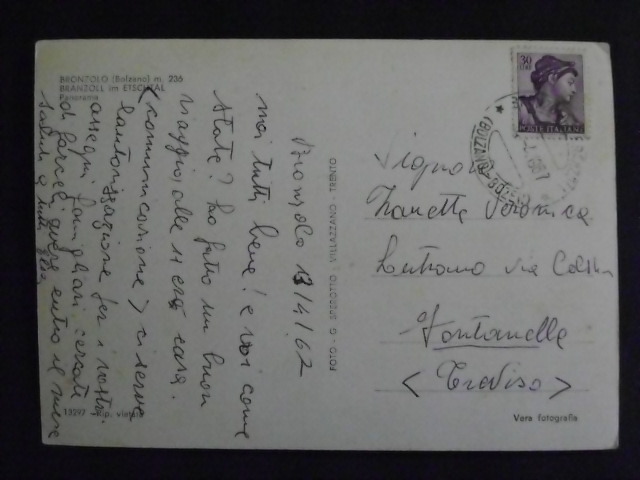 BRONZOLO (Bolzano) m. 236
BRANZOLL im ETSCHTAL
Panorama
Bronzolo 13/4/62
noi tutti bene! e voi come
state? ho fatto un buon
viaggio, alle 11 ero casa.
(comunicazione) ci serve
l'autorizzazione per i vostri
assegni famigliari cercate
di farceli avere entro il mese
saluti a tutti
13297 - Rip. vietata
FOTO - G. SPESSOTTO - VILLAZZANO - TRENTO
30
POSTE ITALIANE
(BOLZANO)
Signora
Zanette Veronica
Lutrano via
Fontanelle
<Treviso>
Vera fotografia